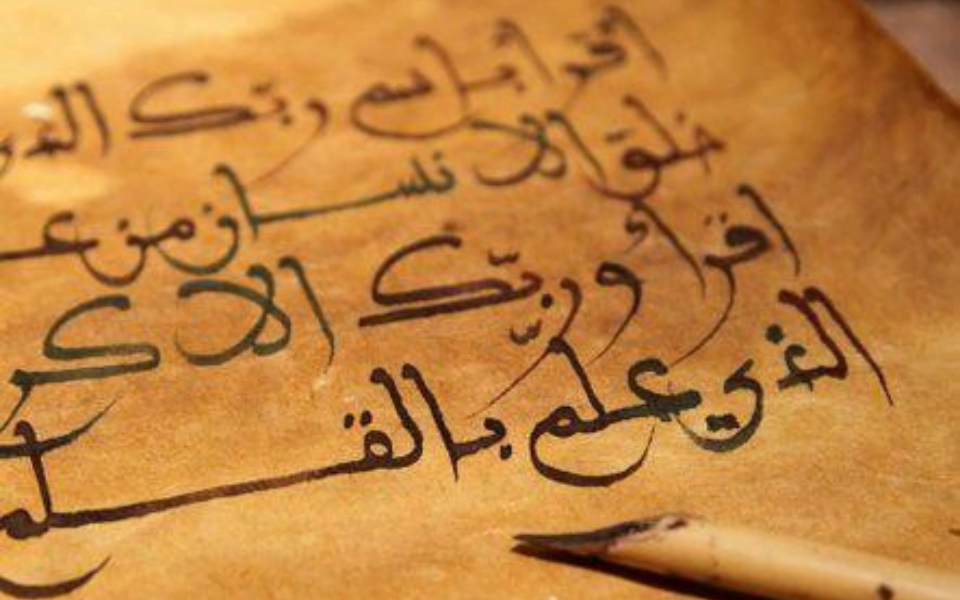 اقرأ بـاسم ربّك الذي
خلق الانسـان من عـ
اقرأ وربّك الاكر
الذي علّم بـالقـلم